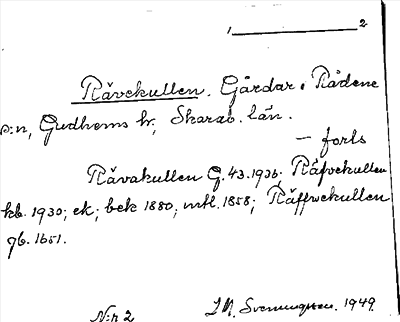 1 2
Rävekullen. Gårdar i Rådene
s:n, Gudhems hr, Skarab. län.
— forts
Rävakullen G. 43. 1936; Räfvekullen
kb. 1930; ek; bek 1880; mtl. 1858; Räffwekullen
gb. 1651.
N:r 2 I M. Svenungsson. 1949.